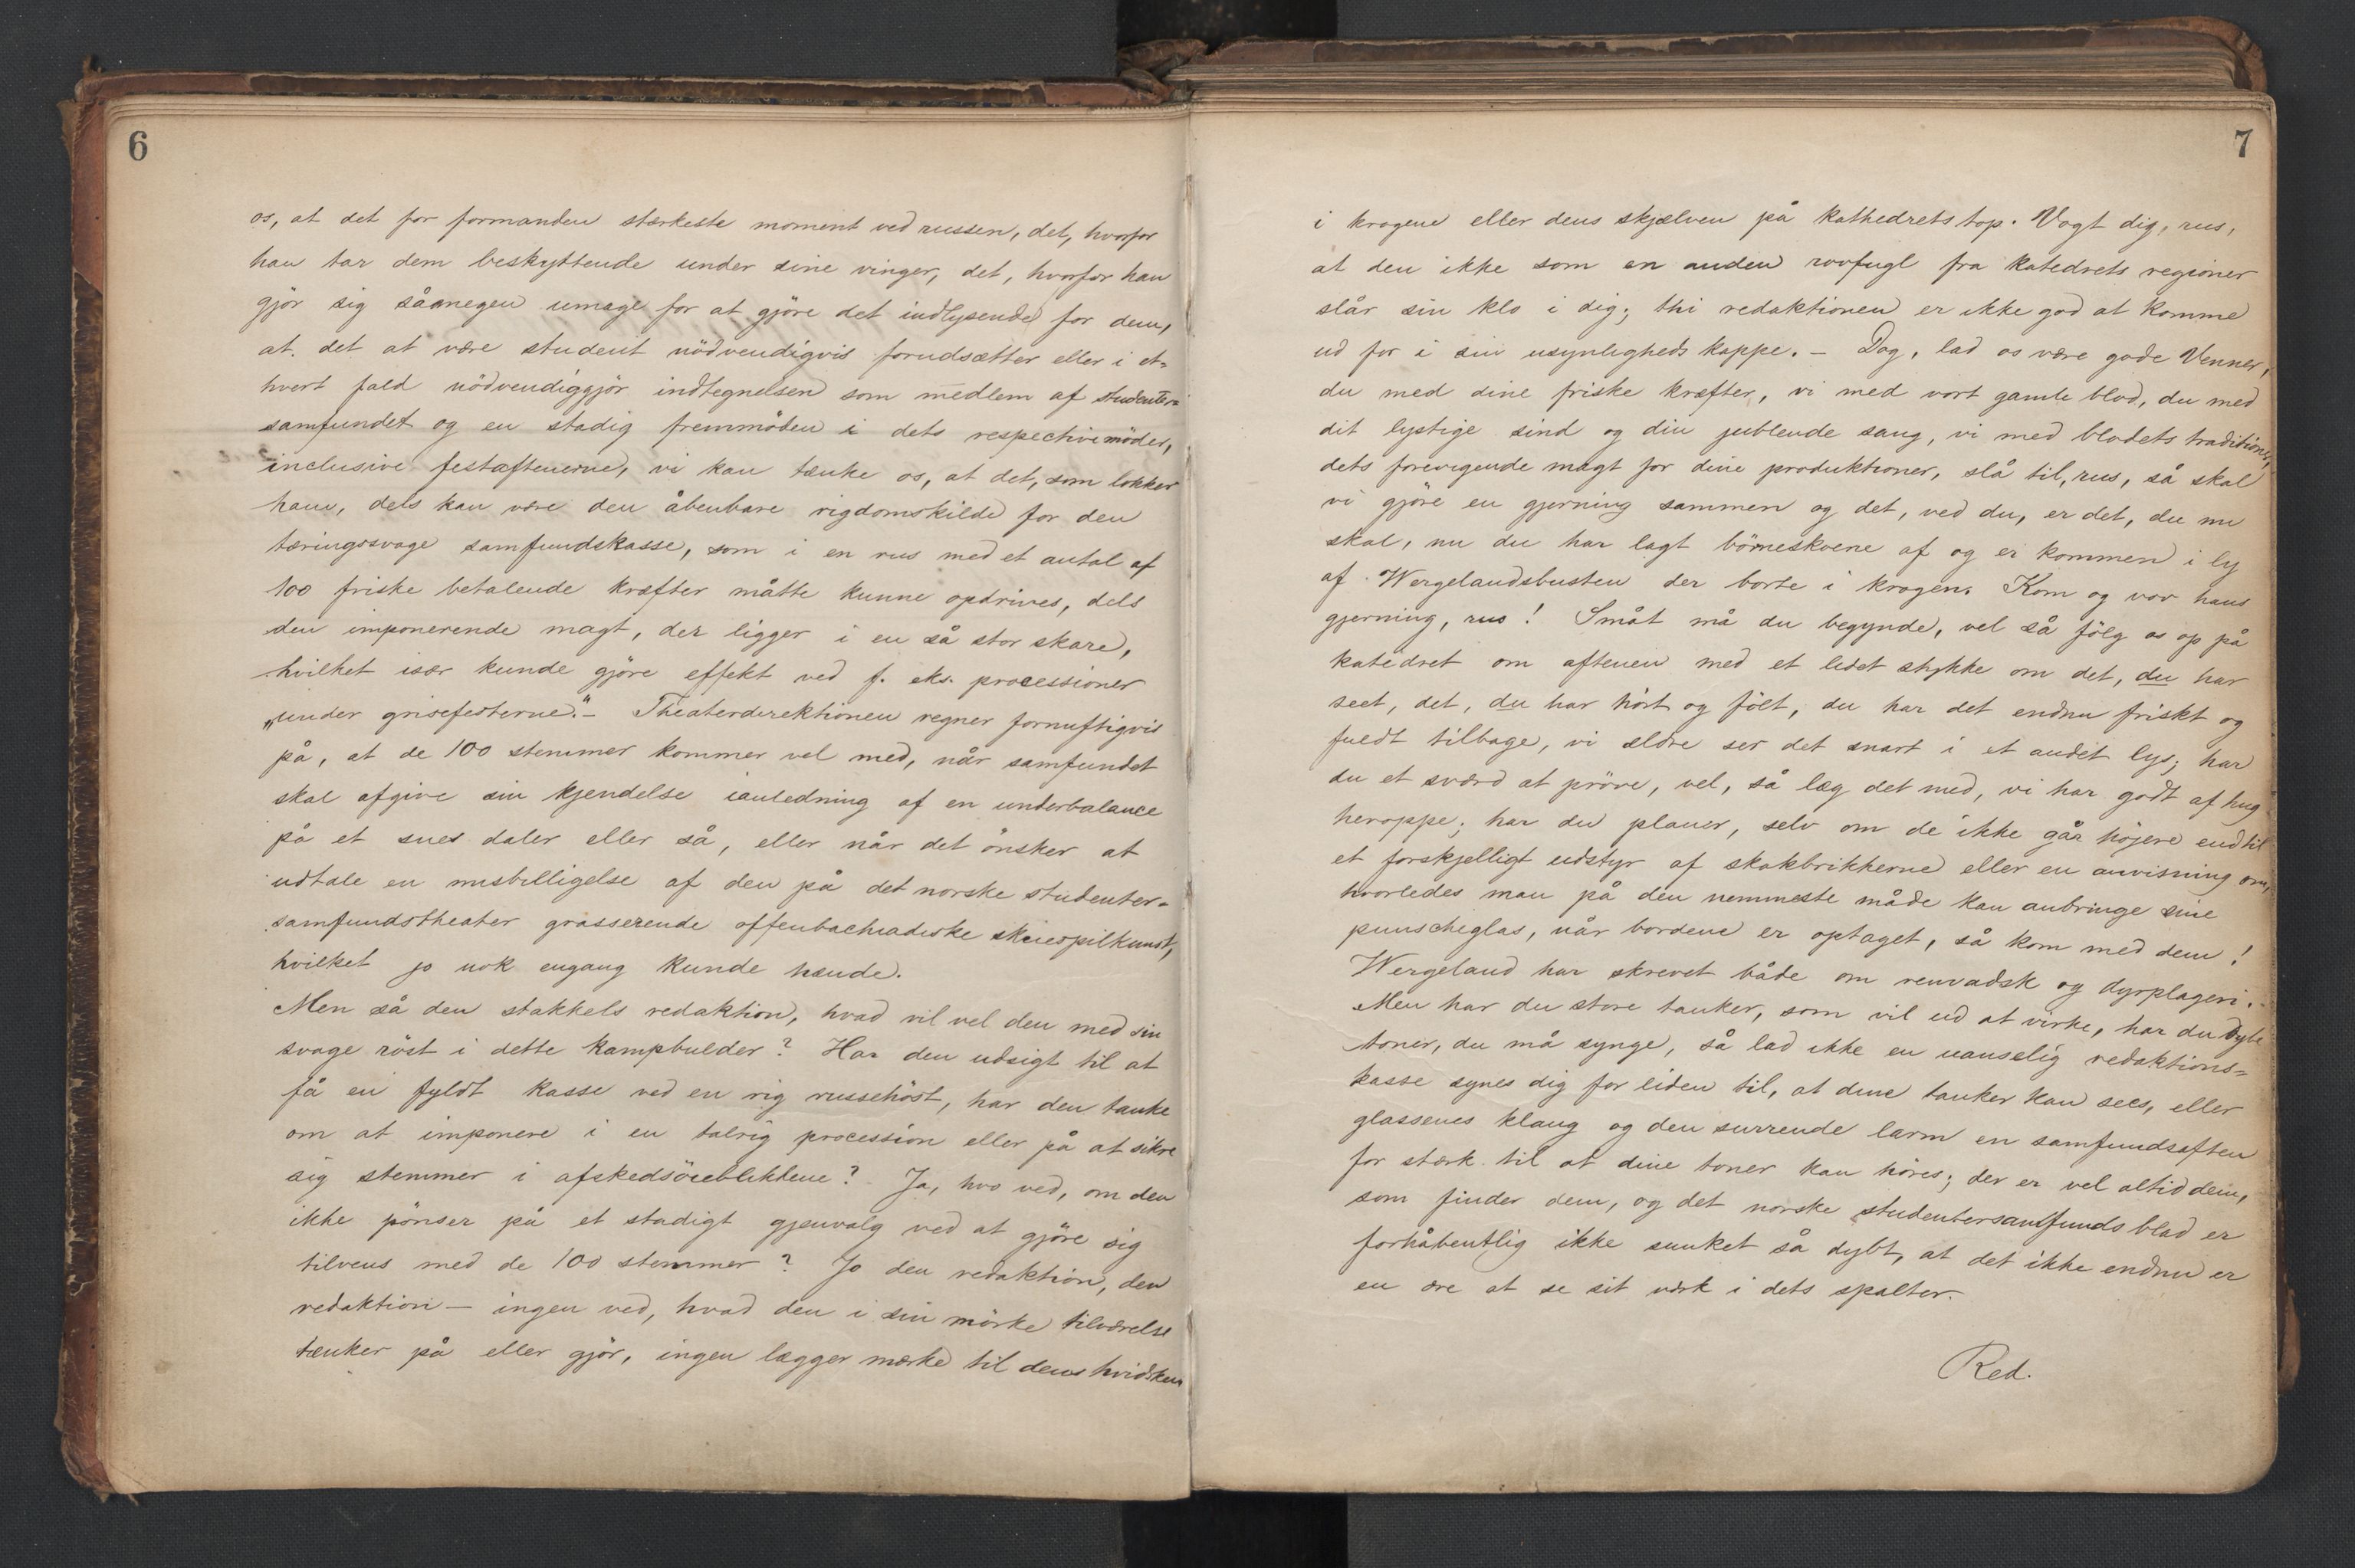 6
os, at det for formanden stærkeste moment ved russen, det, hvorfor
han tar dem beskyttende under sine vinger, det, hvorfor han
gjör sig såmegen umage for at gjöre det indlysende for dem,
at det at være student nödvendigvis forudsætter eller i et-
hvert fald nödvendiggjör indtegnelsen som medlem af studenter=
samfundet og en stadig fremmöden i dets respective möder,
inclusive festaftenerne, vi kan tænke os, at det, som lokker
ham, dels kan være den åbenbare rigdomskilde for den
tæringssvage samfundskasse, som i en rus med et antal af
100 friske betalende kræfter måtte kunne opdrives, dels
den imponerende magt, der ligger i en så stor skare,
hvilket især kunde gjöre effekt ved f. eks. processioner
„under grisefesterne." – Theaterdirektionen regner fornuftigvis
på, at de 100 stemmer kommer vel med, når samfundet
skal afgive sin kjendelse ianledning af en underbalance
på et snes daler eller så, eller når det önsker at
udtale en misbilligelse af den på det norske studenter-
samfundstheater grasserende offenbachiadiske skuespilkunst,
hvilket jo nok engang kunde hænde.
Men så den stakkels redaktion, hvad vil vel den med sin
svage röst i dette kampbulder? Har den udsigt til at
få en fyldt kasse ved en rig russehöst, har den tanke
om at imponere i en talrig procession eller på at sikre
sig stemmer i afskedsöieblikkene? Ja, hvo ved, om den
ikke pönser på et stadigt gjenvalg ved at gjöre sig
tilvens med de 100 stemmer? Jo den redaktion, den
redaktion – ingen ved, hvad den i sin mörke tilværelse
tænker på eller gjör, ingen lægger mærke til dens hvidsken
7
i krogene eller dens skjælven på kathedrets top. Vogt dig, rus,
at den ikke som en anden rovfugl fra katedrets regioner
slår sin klo i dig; thi redaktionen er ikke god at komme
ud for i sin usynligheds kappe. – Dog, lad os være gode Venner,
du med dine friske kræfter, vi med vort gamle blod, du med
dit lystige sind og din jublende sang, vi med bladets traditioner,
dets forevigende magt for dine produktioner, slå til, rus, så skal
vi gjöre en gjerning sammen og det, ved du, er det, du nu
skal, nu du har lagt börneskoene af og er kommen i ly
af Wergelandsbusten der borte i krogen. Kom og vov hans
gjerning, rus! Småt må du begynde, vel så fölg os op på
katedret om aftenen med et lidet stykke om det, du har
seet, det, du har hört og fölt, du har det endnu friskt og
fuldt tilbage, vi ældre ser det snart i et andet lys; har
du et sværd at pröve, vel, så læg det med, vi har godt af hug
heroppe; har du planer, selv om de ikke går höjere end til
et forskjelligt udstyr af skakbrikkerne eller en anvisning om,
hvorledes man på den nemmeste måde kan anbringe sine
punscheglas, når bordene er optaget, så kom med dem!
Wergeland har skrevet både om renvadsk og dyrplageri. –
Men har du store tanker, som vil ud at virke, har du dybe
toner, du må synge, så lad ikke en uanselig redaktions=
kasse synes dig for liden til, at dine tanker kan sees, eller
glassenes klang og den surrende larm en samfundsaften
for stærk til at dine toner kan höres; der er vel altid dem,
som finder dem, og det norske studentersamfunds blad er
forhåbentlig ikke sunket så dybt, at det ikke endnu er
en ære at se sit værk i dets spalter.
Red.